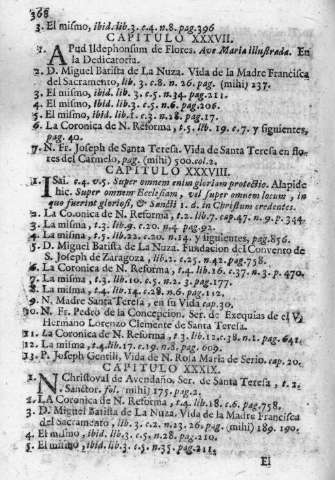 368
3. El mismo, ibid. lib. 3. c. 4. n. 8. pag. 396
CAPITULO XXXVII.
1. APud Ildephonsum de Flores. Ave Maria illustrada. En
la Dedicatoria.
2. D. Miguel Batista de La Nuza. Vida de la Madre Francisca
del Sacramento, lib. 3. c. 8. n. 26. pag. (mihi) 237.
3. El mismo, ibid. lib. 3. c. 5. n. 34. pag. 211.
4. El mismo, ibid. lib. 3. c. 5. n. 6. pag. 206.
5. El mismo, ibid. lib. 1. c. 3. n. 28. pag. 17.
6. La Coronica de N. Reforma, t. 5. lib. 19. c. 7. y siguientes,
pag. 40.
7. N. Fr. Joseph de Santa Teresa. Vida de Santa Teresa en flo-
res del Carmelo, pag. (mihi) 500. col. 2.
CAPITULO XXXVIII.
1. ISai. c. 4. v. 5. Super omnem enim gloriam protectio. Alapide
hic. Super omnem Ecclesiam, vel super omnem locum, in
quo fuerint gloriosi, & Sancti i. d. in Christum credentes.
2. La Coronica de N. Reforma, t. 2. lib. 7. cap. 47. n. 9. p. 344.
3. La misma, t. 3. lib. 9. c. 20. n. 4. pag. 92.
4. La misma, t. 5. lib. 22. c. 21. n. 14. y siguientes, pag. 856.
5. D. Miguel Batista de La Nuza. Fundacion del Convento de
S. Joseph de Zaragoza, lib. 2. c. 25. n. 42. pag. 758.
6. La Coronica de N. Reforma, t. 4. lib. 16. c. 37. n. 3. p. 470.
7. La misma, t. 3. lib. 10. c. 5. n. 2. pag. 177.
8. La misma, t. 4. lib. 14. c. 28. n. 6. pag. 112.
9. N. Madre Santa Teresa, en su Vida cap. 30.
10. N. Fr. Pedro de la Concepcion. Ser. de Exequias de el V.
Hermano Lorenzo Clemente de Santa Teresa.
11. La Coronica de N. Reforma, t. 3. lib. 12. c. 38. n. 1. pag. 641.
12. La misma, t. 4. lib. 17. c. 19. n. 8. pag. 609.
13. P. Joseph Gentili, Vida de N. Rosa Maria de Serio. cap. 20.
CAPITULO XXXIX.
1. N Christoval de Avendaño, Ser. de Santa Teresa, t. 2.
Sanctor. fol. (mihi) 175. pag. 2.
2. La Coronica de N. Reforma, t. 4. lib. 18. c. 6. pag. 758.
3. D. Miguel Batista de La Nuza. Vida de la Madre Francisca
del Sacramento, lib. 3. c. 2. n. 23. 26. pag. (mihi) 189. 190.
4. El mismo, ibid. lib. 3. c. 5. n. 28. pag. 210.
5. El mismo, ibid. lib. 3. c. 5. n. 35. pag. 211.
El